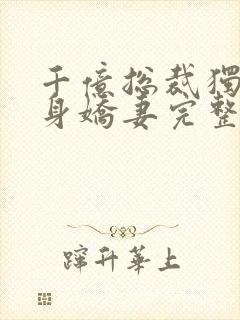 千億总裁獨
身嬌妻完整
蹿升華上